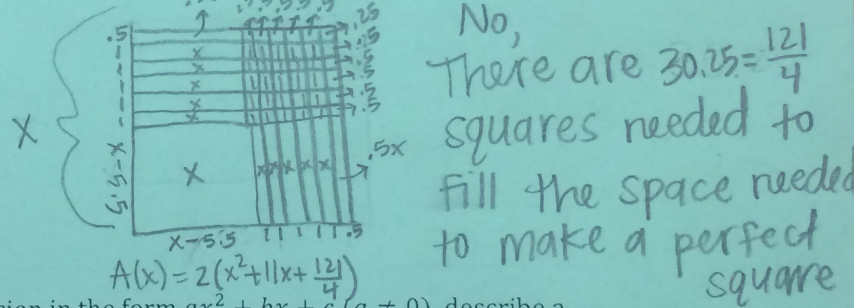 .5
.25
.5
.5
.5
.5
.5
x
x
x
x
x
X
x-5.5
X
x x x x x
.5x
x-5.5 1 1 1 1 1 .5
A(x) = 2(x²+11x+121/4)
No,
There are 30.25=121/4
squares needed to
fill the space needed
to make a perfect
square
in the form ax² + bx + c (a ≠ 0), describe a